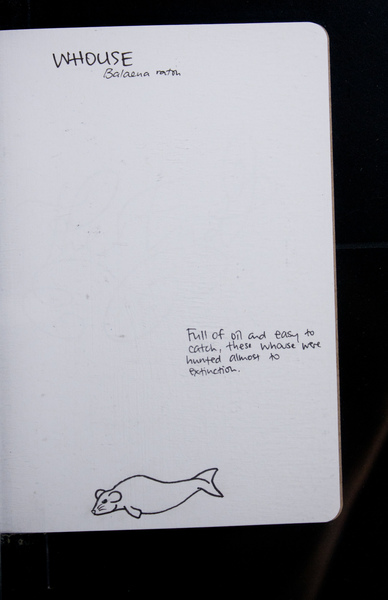 WHOUSE
Balaena raton
Full of oil and easy to
catch, these whouse were
hunted almost to
extinction.